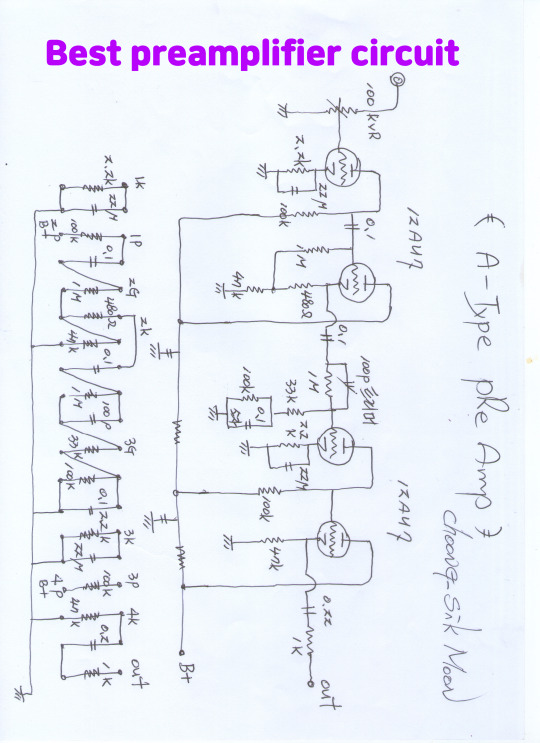 Best preamplifier circuit
{ A-Type pRe Amp }
choong-Sik Moon
12AU7
12AU7
100 kVR
2.2k
22μ
100k
0.1
1M
47k
480Ω
0.1
100p
1M
33k
100k
0.1
2.2
k
22μ
100k
47k
0.22
1k
out
B+
1k
2.2k
22μ
1P
2P
B+
100k
0.1
2G
1M
480Ω
2k
47k
0.1
100p
1M
3G
33k
100k
0.1
3k
2.2k
22μ
3P
4P
B+
100k
4k
47k
0.2
out
1k